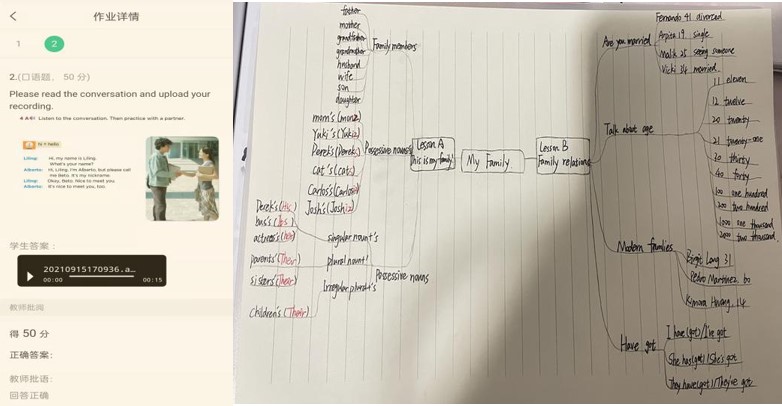 作业详情
1
2
2.(口语题, 50 分)
Please read the conversation and upload your
recording.
4 A Listen to the conversation. Then practice with a partner.
1 hello
Liling: Hi, my name is Liling.
What's your name?
Alberto: Hi, Liling. I'm Alberto, but please call
me Beto. It's my nickname.
Liling: Okay, Beto. Nice to meet you.
Alberto: It's nice to meet you, too.
学生答案:
20210915170936.a...
00:00
00:15
教师批阅
得 50 分
正确答案:
教师批语:
回答正确
father
mother
grandfather
grandmother
husband
wife
son
daughter
Family members
mom's
Yuki's
Derek's
cat's
Carlos's
Josh's
Possessive nouns
Lesson A
This is my family!
Derek's (His)
boss's
actress's
singular nount's
parents' (Their)
sisters' (Their)
plural nount'
children's (Their)
Irregular plural's
Possessive nouns
My Family
Lesson B
Family relations
Are you married
Fernando 41 divorced
19 single
seeing someone
Vicki 34 married
Talk about age
11 eleven
12 twelve
20 twenty
21 twenty-one
30 thirty
40 forty
100 one hundred
200 two hundred
1000 one thousand
2000 two thousand
Modern families
Birgit Lang 31
Pedro Martinez 60
Kimora Hwang 14
Have got
I have (got)/I've got
She has (got)/She's got
They have (got)/They've got